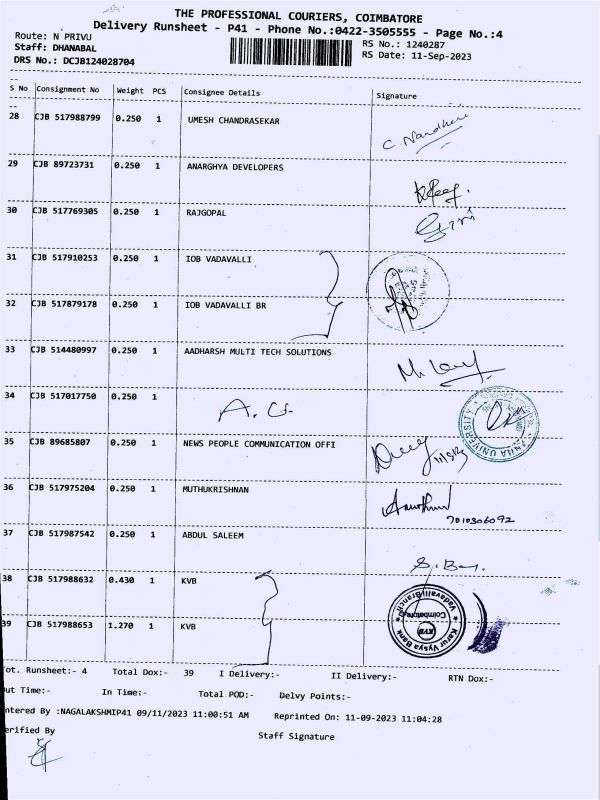 THE PROFESSIONAL COURIERS, COIMBATORE
Delivery Runsheet - P41 - Phone No.:0422-3505555 - Page No.:4
Route: N PRIVU
RS No.: 1240287
Staff: DHANABAL
RS Date: 11-Sep-2023
DRS No.: DCJB124028704
S No Consignment No Weight PCS Consignee Details Signature
28 CJB 517988799 0.250 1 UMESH CHANDRASEKAR
29 CJB 89723731 0.250 1 ANARGHYA DEVELOPERS
30 CJB 517769305 0.250 1 RAJGOPAL
31 CJB 517910253 0.250 1 IOB VADAVALLI
32 CJB 517879178 0.250 1 IOB VADAVALLI BR
33 CJB 514480997 0.250 1 AADHARSH MULTI TECH SOLUTIONS
34 CJB 517017750 0.250 1 A. G.
ANNA UNIVERSITY
35 CJB 89685807 0.250 1 NEWS PEOPLE COMMUNICATION OFFI
36 CJB 517975204 0.250 1 MUTHUKRISHNAN
7010306092
37 CJB 517987542 0.250 1 ABDUL SALEEM
38 CJB 517988632 0.430 1 KVB
Karur Vysya Bank Vadavalli Branch Coimbatore KVB
39 CJB 517988653 1.270 1 KVB
ot. Runsheet:- 4 Total Dox:- 39 I Delivery:- II Delivery:- RTN Dox:-
ut Time:- In Time:- Total POD:- Delvy Points:-
ntered By :NAGALAKSHMIP41 09/11/2023 11:00:51 AM Reprinted On: 11-09-2023 11:04:28
erified By Staff Signature